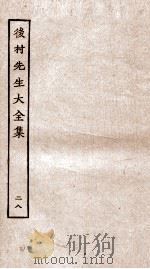 後村先生大全集
二八
野狗